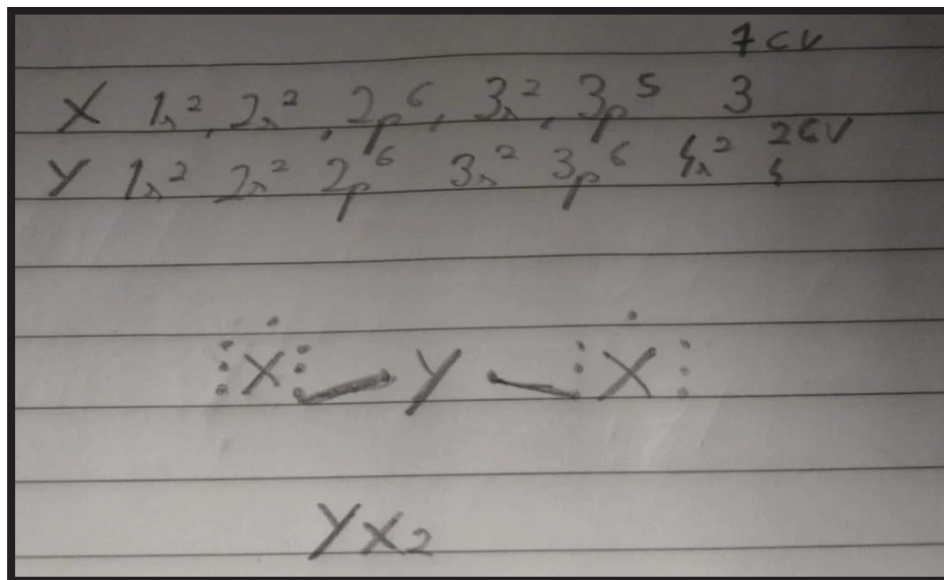 7 CV
X 1s², 2s², 2p⁶, 3s², 3p⁵ 3
Y 1s² 2s² 2p⁶ 3s² 3p⁶ 4s² 2CV 4
X Y X
YX₂